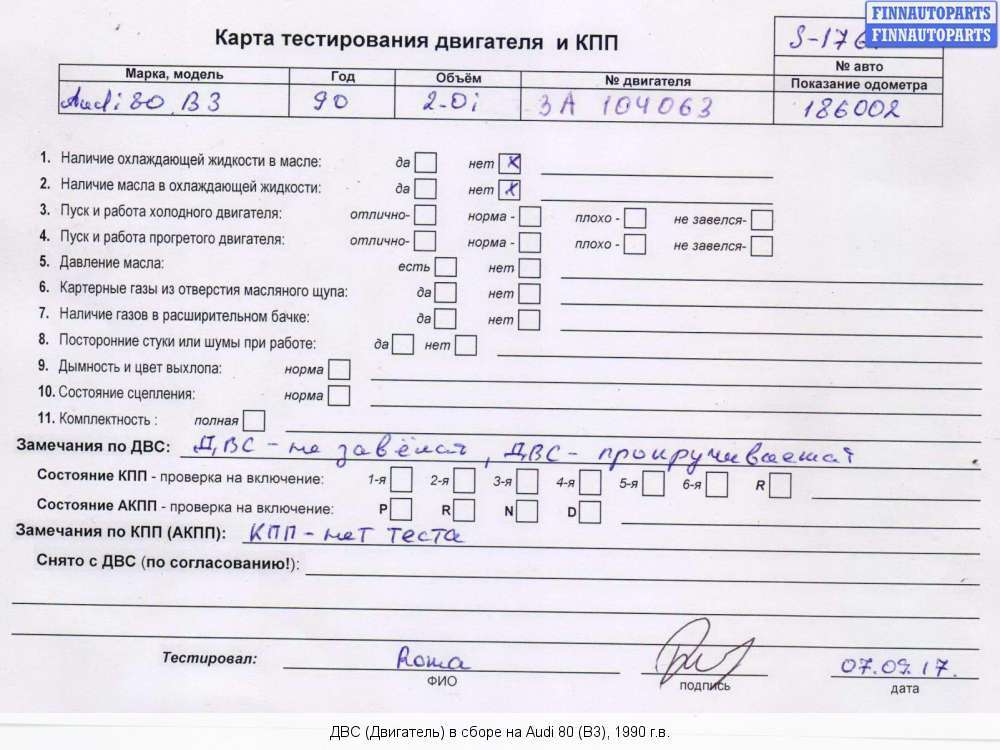 FINNAUTOPARTS
FINNAUTOPARTS
Карта тестирования двигателя и КПП
S-176
№ авто
Марка, модель Год Объём № двигателя Показание одометра
Audi 80 B3 90 2.0i 3A 104063 186002
1. Наличие охлаждающей жидкости в масле: да нет x
2. Наличие масла в охлаждающей жидкости: да нет x
3. Пуск и работа холодного двигателя: отлично- норма - плохо - не завелся-
4. Пуск и работа прогретого двигателя: отлично- норма - плохо - не завелся-
5. Давление масла: есть нет
6. Картерные газы из отверстия масляного щупа: да нет
7. Наличие газов в расширительном бачке: да нет
8. Посторонние стуки или шумы при работе: да нет
9. Дымность и цвет выхлопа: норма
10. Состояние сцепления: норма
11. Комплектность : полная
Замечания по ДВС: ДВС - не завёлся, ДВС - прокручивается
Состояние КПП - проверка на включение: 1-я 2-я 3-я 4-я 5-я 6-я R
Состояние АКПП - проверка на включение: P R N D
Замечания по КПП (АКПП): КПП - нет теста
Снято с ДВС (по согласованию!):
Тестировал: Roma 07.09.17.
ФИО подпись дата
ДВС (Двигатель) в сборе на Audi 80 (B3), 1990 г.в.